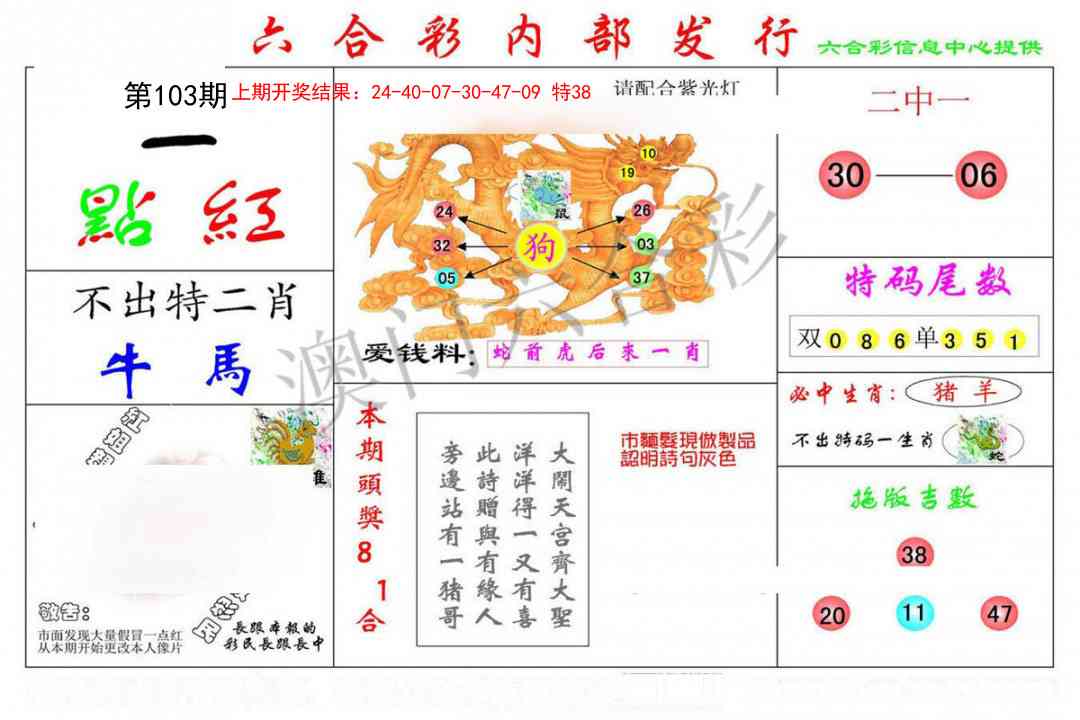 六合彩内部发行
六合彩信息中心提供
第103期
上期开奖结果：24-40-07-30-47-09 特38
请配合紫光灯
一
點紅
不出特二肖
牛 馬
红姐
敬告：
市面发现大量假冒一点红
从本期开始更改本人像片
長跟本報的
彩民長跟長中
10
19
鼠
24
26
32
狗
03
05
37
爱钱料：
蛇前虎后來一肖
本期頭獎8 1合
大鬧天宮齊大聖
洋洋得一又有喜
此詩贈與有緣人
旁邊站有一猪哥
市麵髮現倣製品
認明詩句灰色
二中一
30 06
特码尾数
双0 8 6单3 5 1
必中生肖：猪 羊
不出特码一生肖
蛇
拖版吉数
38
20 11 47
澳门六合彩